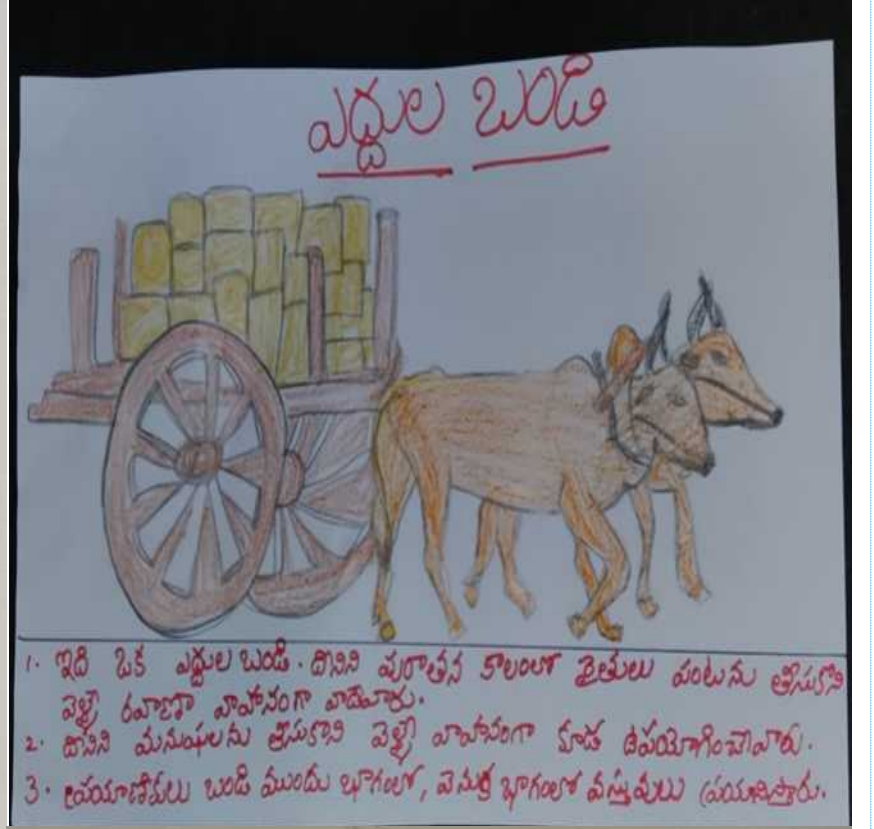 ఎద్దుల బండి
1. ఇది ఒక ఎద్దుల బండి. దీనిని పురాతన కాలంలో రైతులు పంటను తీసుకొని
వెళ్ళే రవాణా వాహనంగా వాడేవారు.
2. దీనిని మనుషులను తీసుకొని వెళ్ళే వాహనంగా కూడ ఉపయోగించేవారు.
3. ప్రయాణీకులు బండి ముందు భాగంలో, వెనుక భాగంలో వస్తువులు ప్రయాణిస్తారు.